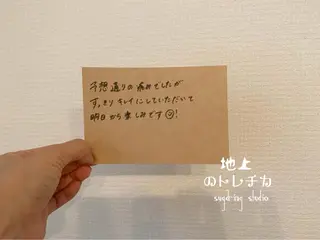 予想通りの痛みでしたが
すっきりキレイにしていただいて
明日から楽しみです☺!
地上
のトレチカ
sugd-ing studio